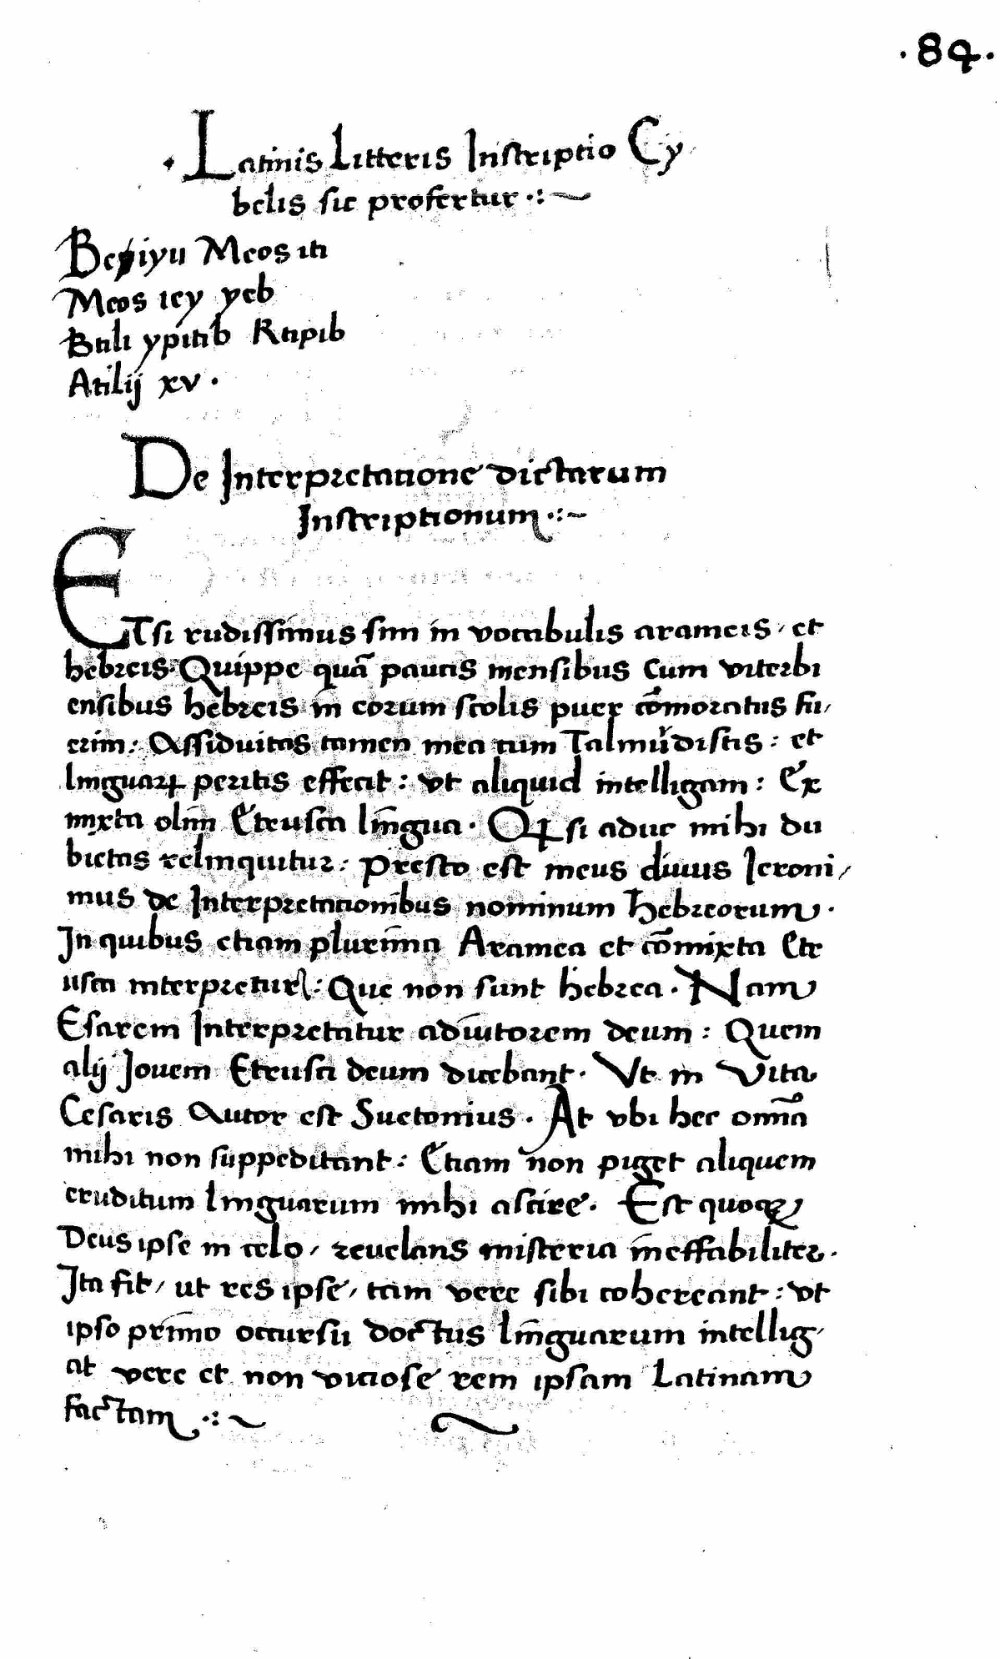 ·84·
Latinis Litteris Inscriptio Cy
belis sic profertur ·:~
Meos iti
Meos icy yeb
Bali ypitib Rapib
Atilij xv ·
De Interpretatione dictarum
Inscriptionum ·:~
ETsi rudissimus sim in vocabulis arameis, et
hebreis. Quippe quā paucis mensibus cum viterbi
ensibus hebreis in eorum scolis puer cōmoratus fu,
erim: Assiduitas tamen mea cum Talmudistis: et
linguaꝝ peritis effecit: vt aliquid intelligam: Ex
mixta olim Etrusca lingua. Qꝝ si aduc mihi du
bietas relinquitur: Presto est meus diuus Ieroni,
mus de Interpretationibus nominum Hebreorum.
In quibus etiam plurima Aramea et cōmixta Etr
usca interpretur: Que non sunt hebrea. Nam
Esarem Interpretatur adiutorem deum: Quem
alij Iouem Etrusci deum dicebant. Vt in Vita
Cesaris Autor est Suetonius. At vbi hec omnia
mihi non suppeditant: Etiam non piget aliquem
eruditum linguarum mihi ascire. Est quoqꝫ
Deus ipse in celo, reuelans misteria ineffabiliter.
Ita fit, ut res ipse, tam vere sibi cohereant: vt
ipso primo occursu doctus linguarum intellig,
at vere et non viciose rem ipsam Latinam
factam ·:~